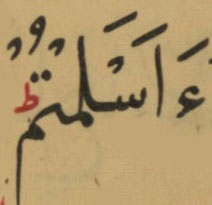 ءَاَسْلَمْتُمْ ط